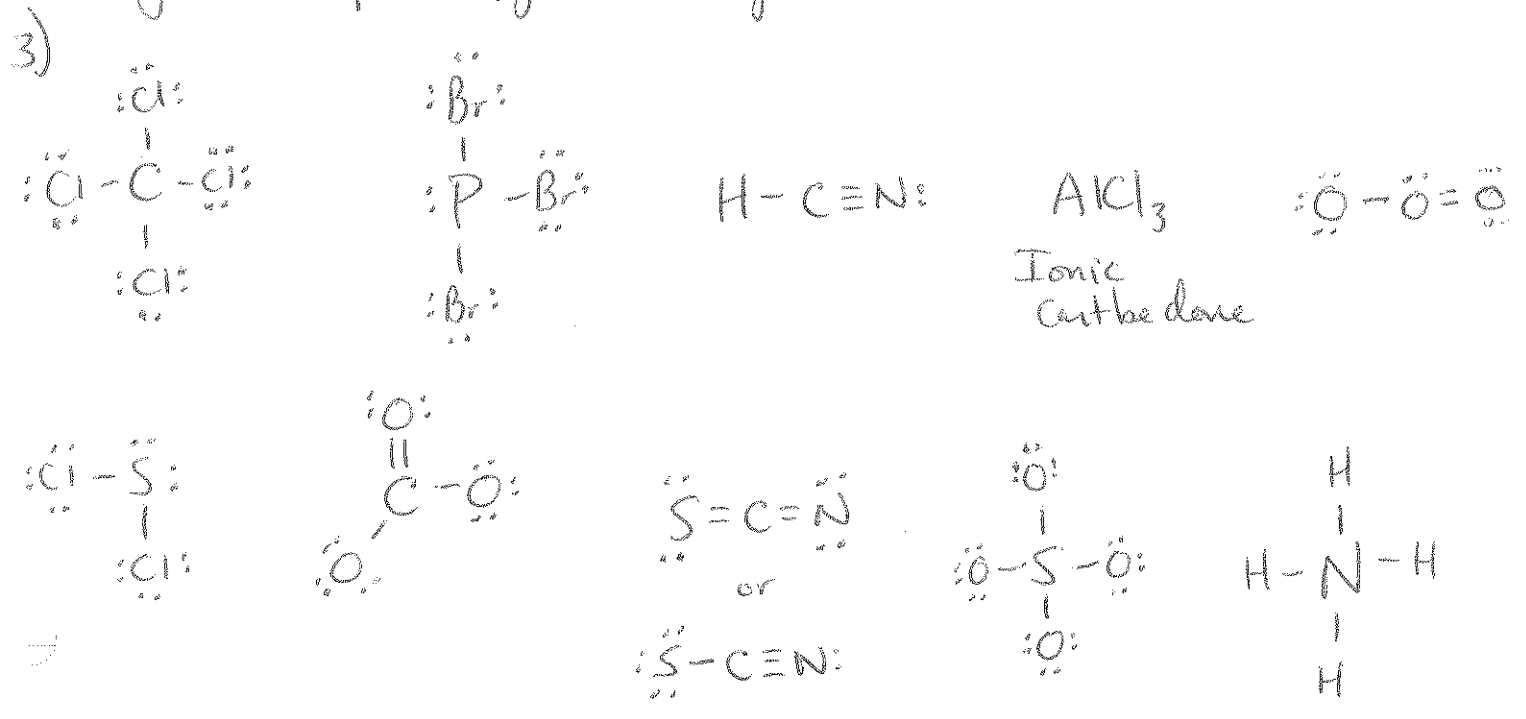 3)
:C̈l:
|
:C̈l - C - C̈l:
|
:Cl:
:B̈r:
|
:P - B̈r:
|
:Br:
H - C ≡ N:
AlCl₃
Ionic
Can't be done
:Ö - Ö = Ö
:C̈l - S̈:
|
:Cl:
:O:
||
C - Ö:
/
:Ö:
S̈ = C = N̈
or
:S̈ - C ≡ N:
:Ö:
|
:Ö - S - Ö:
|
:O:
H
|
H - N - H
|
H